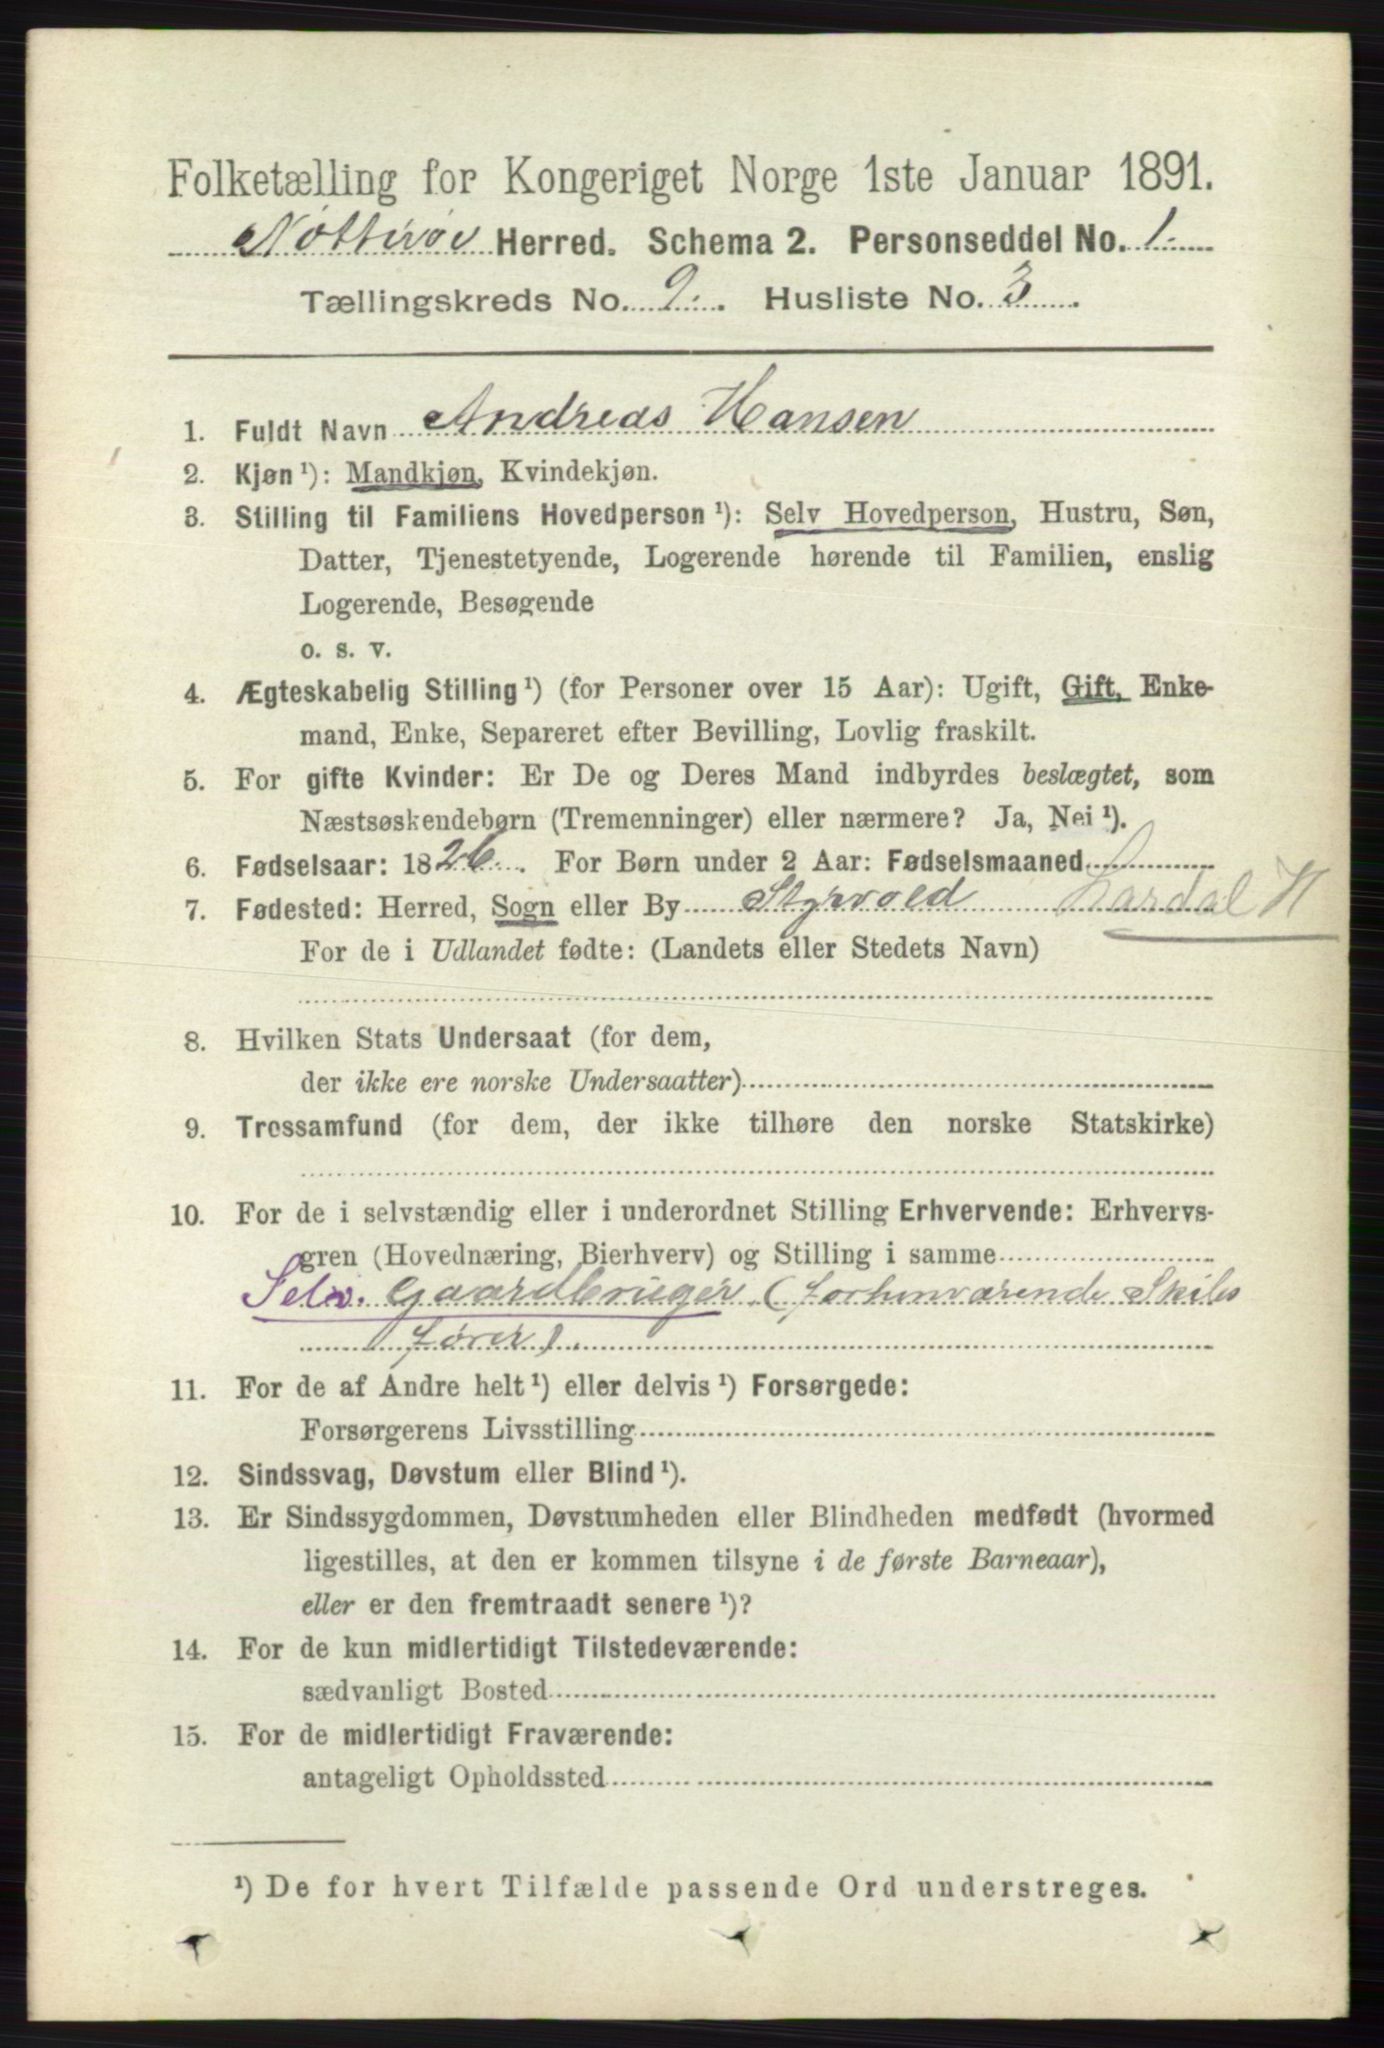 Folketælling for Kongeriget Norge 1ste Januar 1891.
Nøtterøe Herred. Schema 2. Personseddel No. 1.
Tællingskreds No. 9. Husliste No. 3.
1. Fuldt Navn Andreas Hansen
2. Kjøn ¹): Mandkjøn, Kvindekjøn.
3. Stilling til Familiens Hovedperson ¹): Selv Hovedperson, Hustru, Søn,
Datter, Tjenestetyende, Logerende hørende til Familien, enslig
Logerende, Besøgende
o. s. v.
4. Ægteskabelig Stilling ¹) (for Personer over 15 Aar): Ugift, Gift, Enke-
mand, Enke, Separeret efter Bevilling, Lovlig fraskilt.
5. For gifte Kvinder: Er De og Deres Mand indbyrdes beslægtet, som
Næstsøskendebørn (Tremenninger) eller nærmere? Ja, Nei ¹).
6. Fødselsaar: 1826. For Børn under 2 Aar: Fødselsmaaned
7. Fødested: Herred, Sogn eller By Styrvold Lardal H
For de i Udlandet fødte: (Landets eller Stedets Navn)
8. Hvilken Stats Undersaat (for dem,
der ikke ere norske Undersaatter)
9. Trossamfund (for dem, der ikke tilhøre den norske Statskirke)
10. For de i selvstændig eller i underordnet Stilling Erhvervende: Erhvervs-
gren (Hovednæring, Bierhverv) og Stilling i samme
Selv. Gaardbruger (forhenværende Skibs
fører).
11. For de af Andre helt ¹) eller delvis ¹) Forsørgede:
Forsørgerens Livsstilling
12. Sindssvag, Døvstum eller Blind ¹).
13. Er Sindssygdommen, Døvstumheden eller Blindheden medfødt (hvormed
ligestilles, at den er kommen tilsyne i de første Barneaar),
eller er den fremtraadt senere ¹)?
14. For de kun midlertidigt Tilstedeværende:
sædvanligt Bosted
15. For de midlertidigt Fraværende:
antageligt Opholdssted
¹) De for hvert Tilfælde passende Ord understreges.